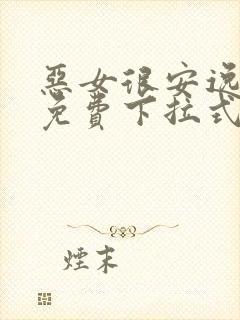 惡女很安逸
免費下拉式
煙末